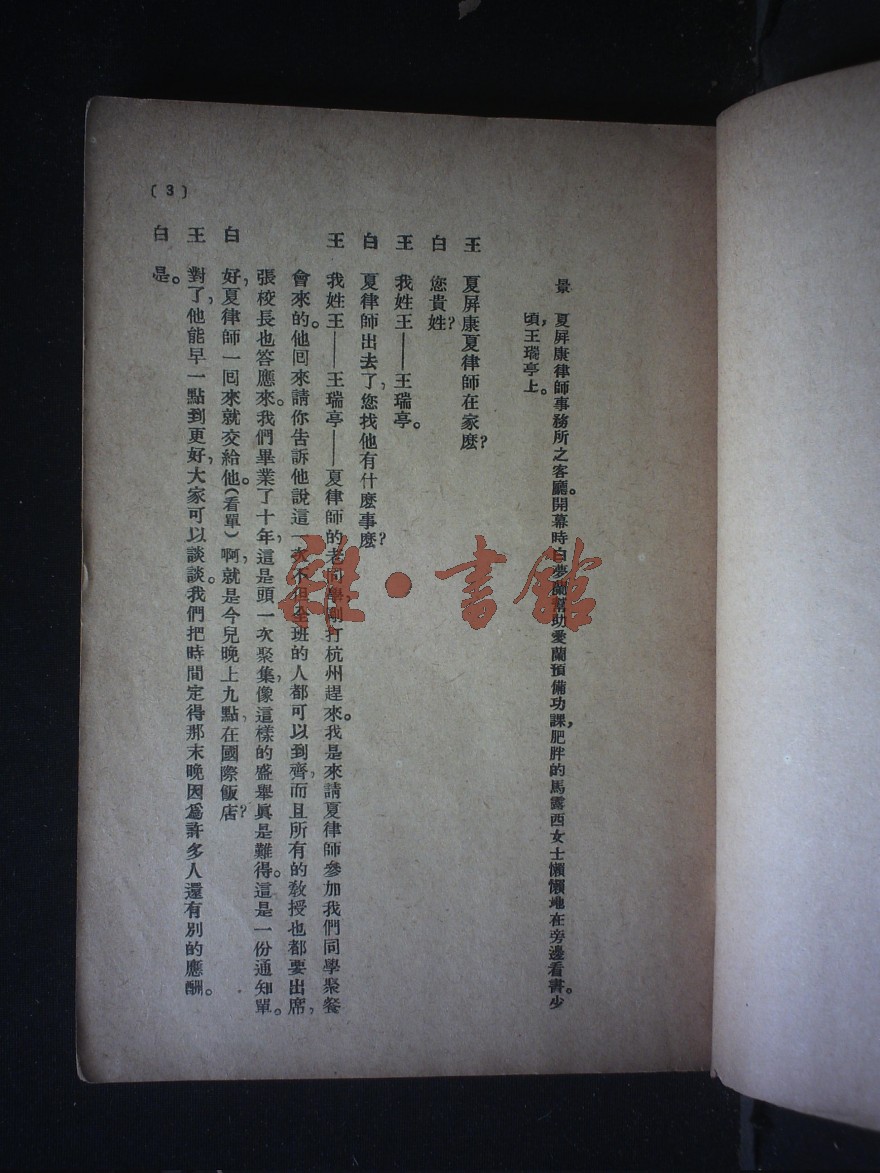 景　夏屏康律師事務所之客廳。開幕時白夢蘭幫助愛蘭預備功課，肥胖的馬露西女士懶懶地在旁邊看書。少
頃，王瑞亭上。
王　夏屏康夏律師在家麽？
白　您貴姓？
王　我姓王——王瑞亭。
白　夏律師出去了，您找他有什麽事麽？
王　我姓王——王瑞亭——夏律師的老同學，剛打杭州趕來。我是來請夏律師參加我們同學聚餐
會來的。他回來請你告訴他說這一次不但全班的人都可以到齊，而且所有的教授也都要出席，
張校長也答應來。我們畢業了十年，這是頭一次聚集，像這樣的盛舉眞是難得。這是一份通知單。
白　好，夏律師一回來就交給他。（看單）啊，就是今兒晚上九點，在國際飯店？
王　對了，他能早一點到更好，大家可以談談。我們把時間定得那末晚因爲許多人還有別的應酬。
白　是。
〔3〕
雜·書館